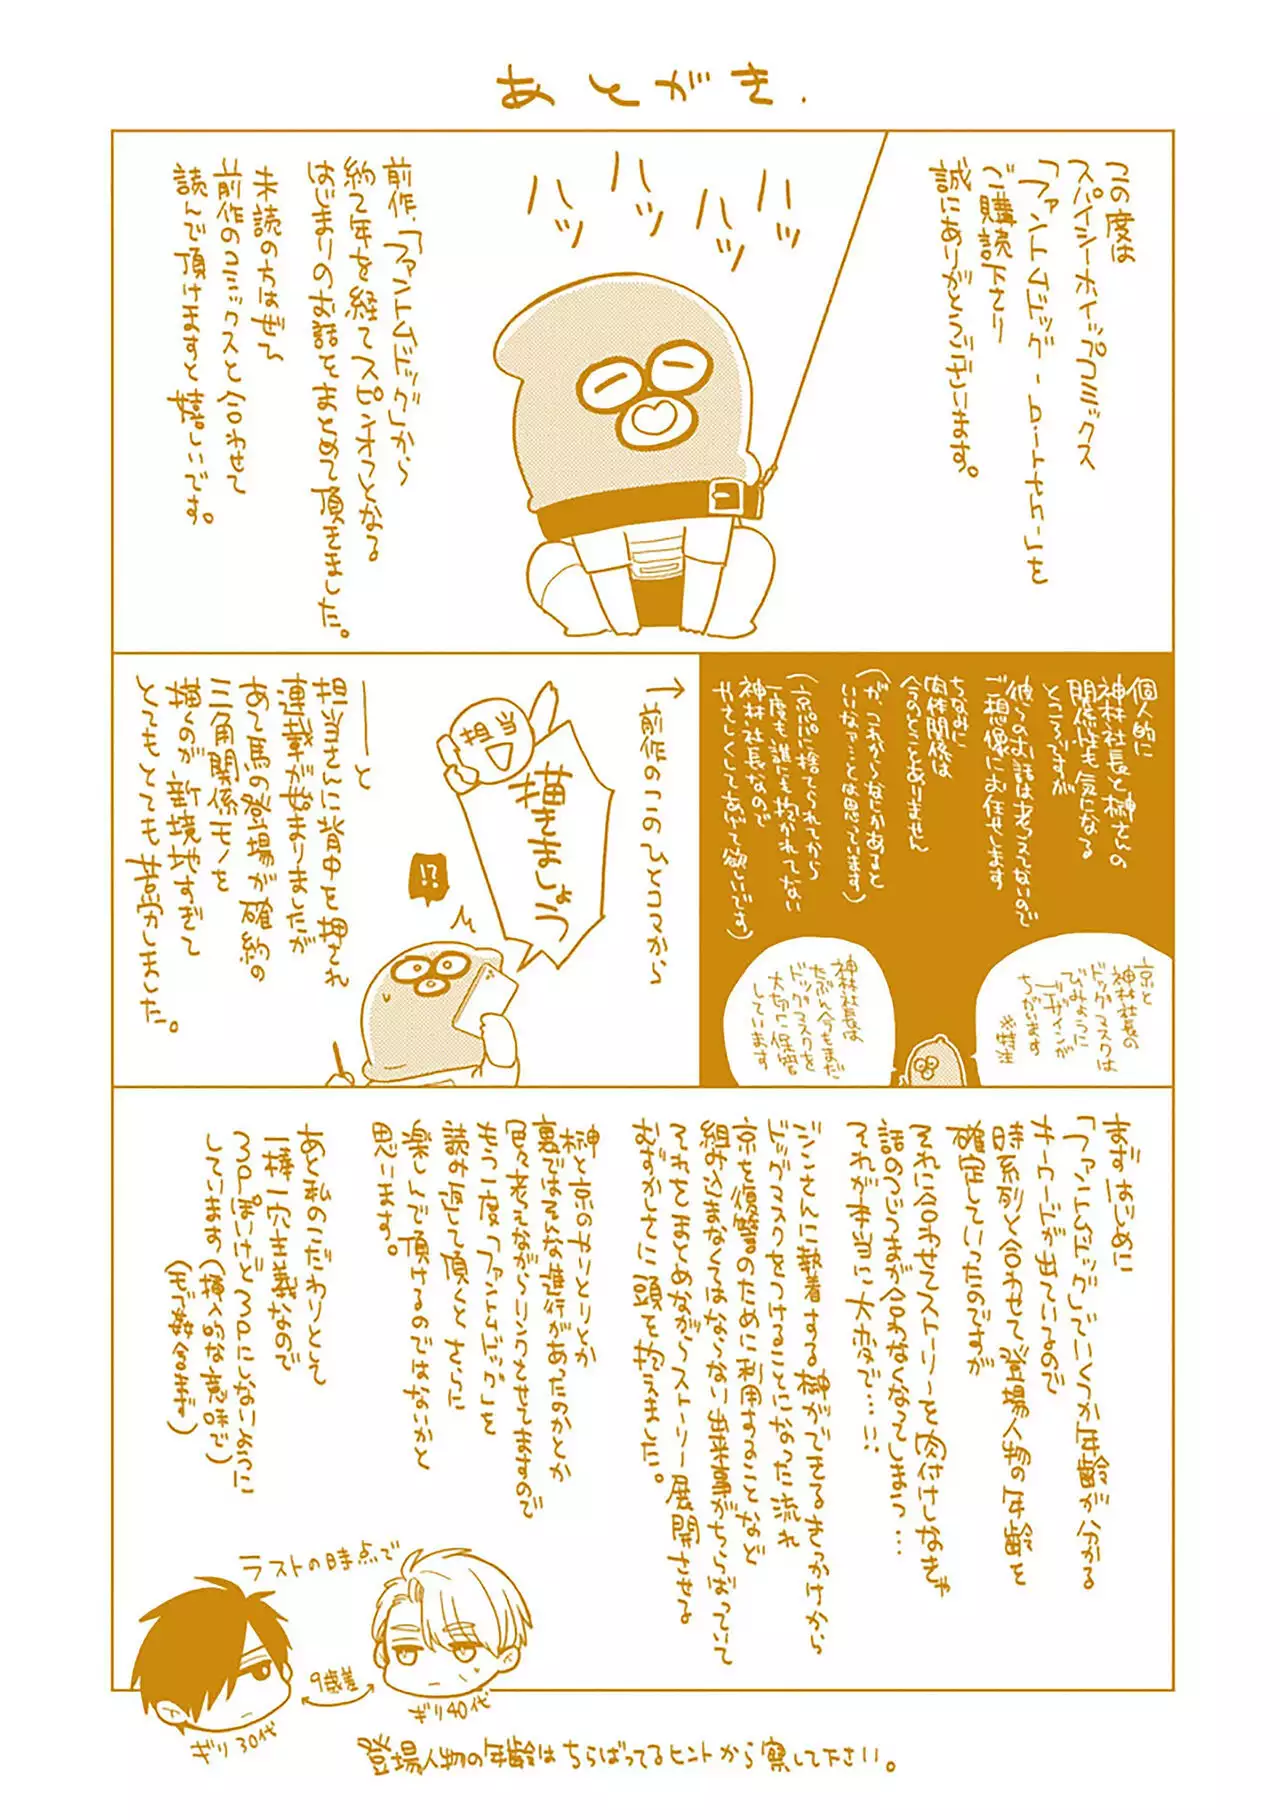 あとがき.
この度は
スパイシーホイップコミックス
「ファントムドッグ-birth-」を
ご購読下さり
誠にありがとうございます。
ハッ
ハッ
ハッ
ハッ
前作、「ファントムドッグ」から
約2年を経てスピンオフとなる
はじまりのお話をまとめて頂きました。
未読の方はぜひ
前作のコミックスと合わせて
読んで頂けますと嬉しいです。
個人的に
神林社長と榊さんの
関係性も気になる
ところですが
彼らのお話は考えてないので
ご想像にお任せします
ちなみに
肉体関係は
今のとこありません
(が、これからなにかあると
いいなァ…とは思っています)
(京パパに捨てられてから
一度も誰にも抱かれてない
神林社長なので
やさしくしてあげて欲しいです)
京と
神林社長の
ドッグマスクは
びみょうに
デザインが
ちがいます
※特注
神林社長は
たぶん今もまだ
ドッグマスクを
大切に保管
しています
→前作のこのひとコマから
担当
描きましょう
!?
――と
担当さんに背中を押され
連載が始まりましたが
あて馬の登場が確約の
三角関係モノを
描くのが新境地すぎて
とてもとても苦労しました。
まずはじめに
「ファントムドッグ」でいくつか年齢が分かる
キーワードが出ているので
時系列と合わせて登場人物の年齢を
確定していったのですが
それに合わせてストーリーを肉付けしなきゃ
話のつじつまが合わなくなってしまう…
それが本当に大変で……
ジンさんに執着する榊ができるきっかけから
ドッグマスクをつけることになった流れ
京を復讐のために利用することなど
組み込まなくてはならない出来事がちらばっていて
それをまとめながらストーリー展開させる
むずかしさに頭を抱えました。
榊と京のやりとりとか
裏ではそんな進行があったのかとか
色々考えながらリンクさせてますので
もう一度「ファントムドッグ」を
読み直して頂くとさらに
楽しんで頂けるのではないかと
思います。
あと私のこだわりとして
一棒一穴主義なので
3Pぽいけど3Pにしないように
してます(挿入的な意味で)
(モブ姦含まず)
ラストの時点で
9歳差
ギリ30代
ギリ40代
登場人物の年齢はちらばってるヒントから察して下さい。